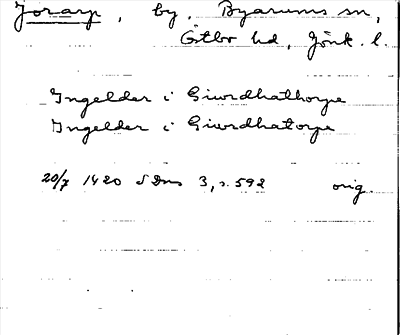 Jorarp, by, Byarums sn,
Östbo hd, Jönk. l.
Ingelder i Giurdhathorpe
Ingelder i Giurdhatorpe
20/7 1420 SDns 3, s. 592 orig.